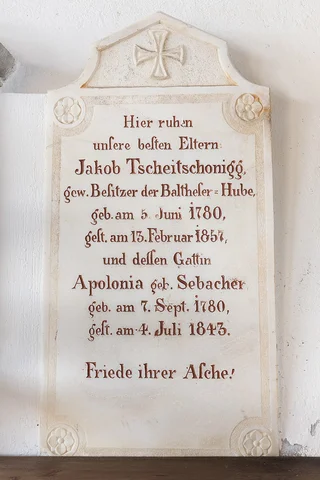 Hier ruhen
unsere besten Eltern:
Jakob Tscheitschonigg,
gew. Besitzer der Baltheser=Hube,
geb. am 5. Juni 1780,
gest. am 13. Februar 1857,
und dessen Gattin
Apolonia geb. Sebacher
geb. am 7. Sept. 1780,
gest. am 4. Juli 1843.
Friede ihrer Asche!